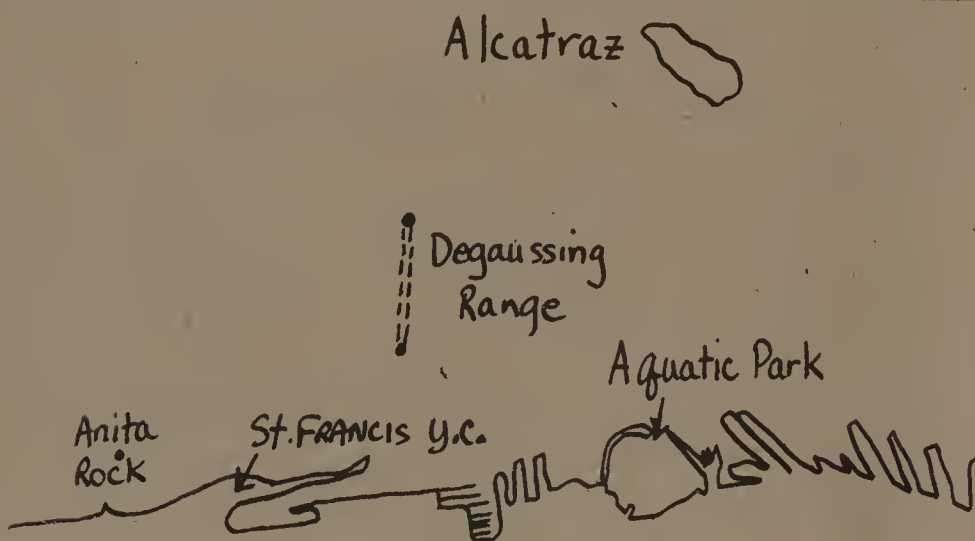 Alcatraz
Degaussing
Range
Aquatic Park
Anita
Rock
St. FRANCIS Y.C.